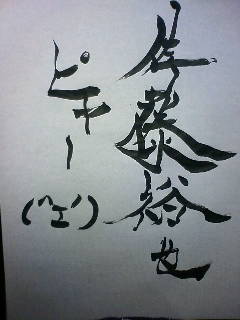 佐藤裕也
ピャー
(笑)